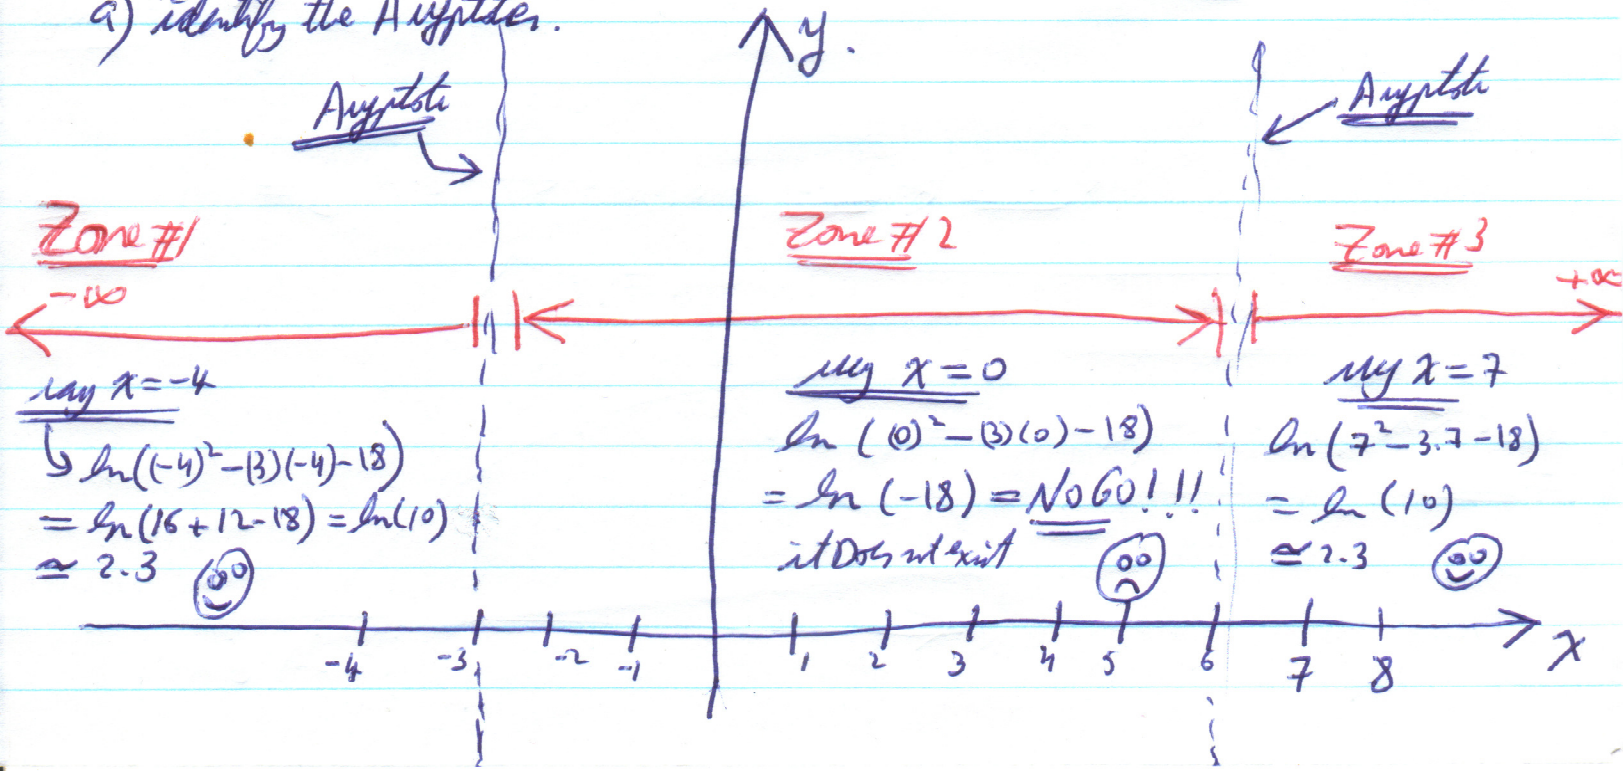 a) identify the Asyptotes.
y.
Asyptote
Asyptote
Zone #1
Zone #2
Zone #3
-∞
+∞
say x=-4
ln((-4)²-(3)(-4)-18)
= ln(16+12-18) = ln(10)
≃ 2.3
say x=0
ln ( (0)²-(3)(0)-18)
= ln (-18) = NO GO!!!
it Does not exist
say x=7
ln(7²-3.7-18)
= ln (10)
≃ 2.3
-4 -3 -2 -1 1 2 3 4 5 6 7 8 x